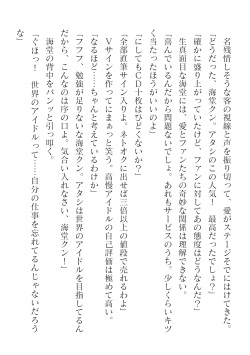 名残惜しそうな客の視線と声を振り切って、愛がステージそでにはけてきた。
「どうだった、海堂クン。アタシのこの人気！　最高だったでしょ？」
「確かに盛り上がっていたけど、ファンに対してあの態度はどうなんだ？」
生真面目な海堂には、愛とファンたちの奇妙な関係は理解できない。
「喜んでいるんだから問題ないでしょ。あれもサービスのうち。少しくらいキツ
く当たったほうがいいのよ」
「にしてもＣＤ十枚はひどくないか？」
「全部直筆サイン入りよ。ネトオクに出せば三倍以上の値段で売れるわよ」
Ｖサインを作ってにまぁっと笑う。高慢アイドルの自己評価は極めて高い。
「なるほど……ちゃんと考えているわけか」
「フフフ、勉強が足りないな海堂クン。アタシは世界のアイドルを目指してるん
だから、こんなのは序の口よ。気合い入れなさい、海堂クン！」
海堂の背中をバンッと引っ叩く。
「ぐほっ！　世界のアイドルって……自分の仕事を忘れてるんじゃないだろう
な」